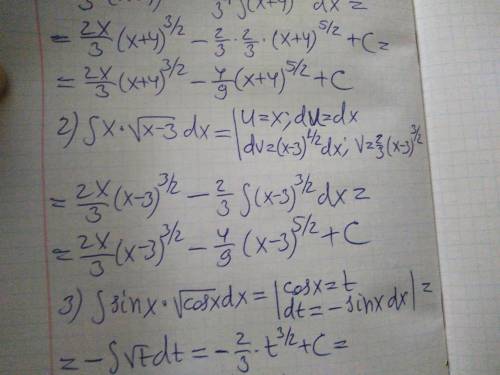 = 2x/3 (x+4)^3/2 − 2/3 · 2/3 · (x+4)^5/2 + C =
= 2x/3 (x+4)^3/2 − 4/9 (x+4)^5/2 + C
2) ∫ x · √(x-3) dx = | u = x; du = dx
dv = (x-3)^1/2 dx; v = 2/3 (x-3)^3/2
= 2x/3 (x-3)^3/2 − 2/3 ∫ (x-3)^3/2 dx =
= 2x/3 (x-3)^3/2 − 4/9 (x-3)^5/2 + C
3) ∫ sinx · √cosx dx = | cosx = t
dt = − sinx dx | =
= − ∫ √t dt = − 2/3 · t^3/2 + C =